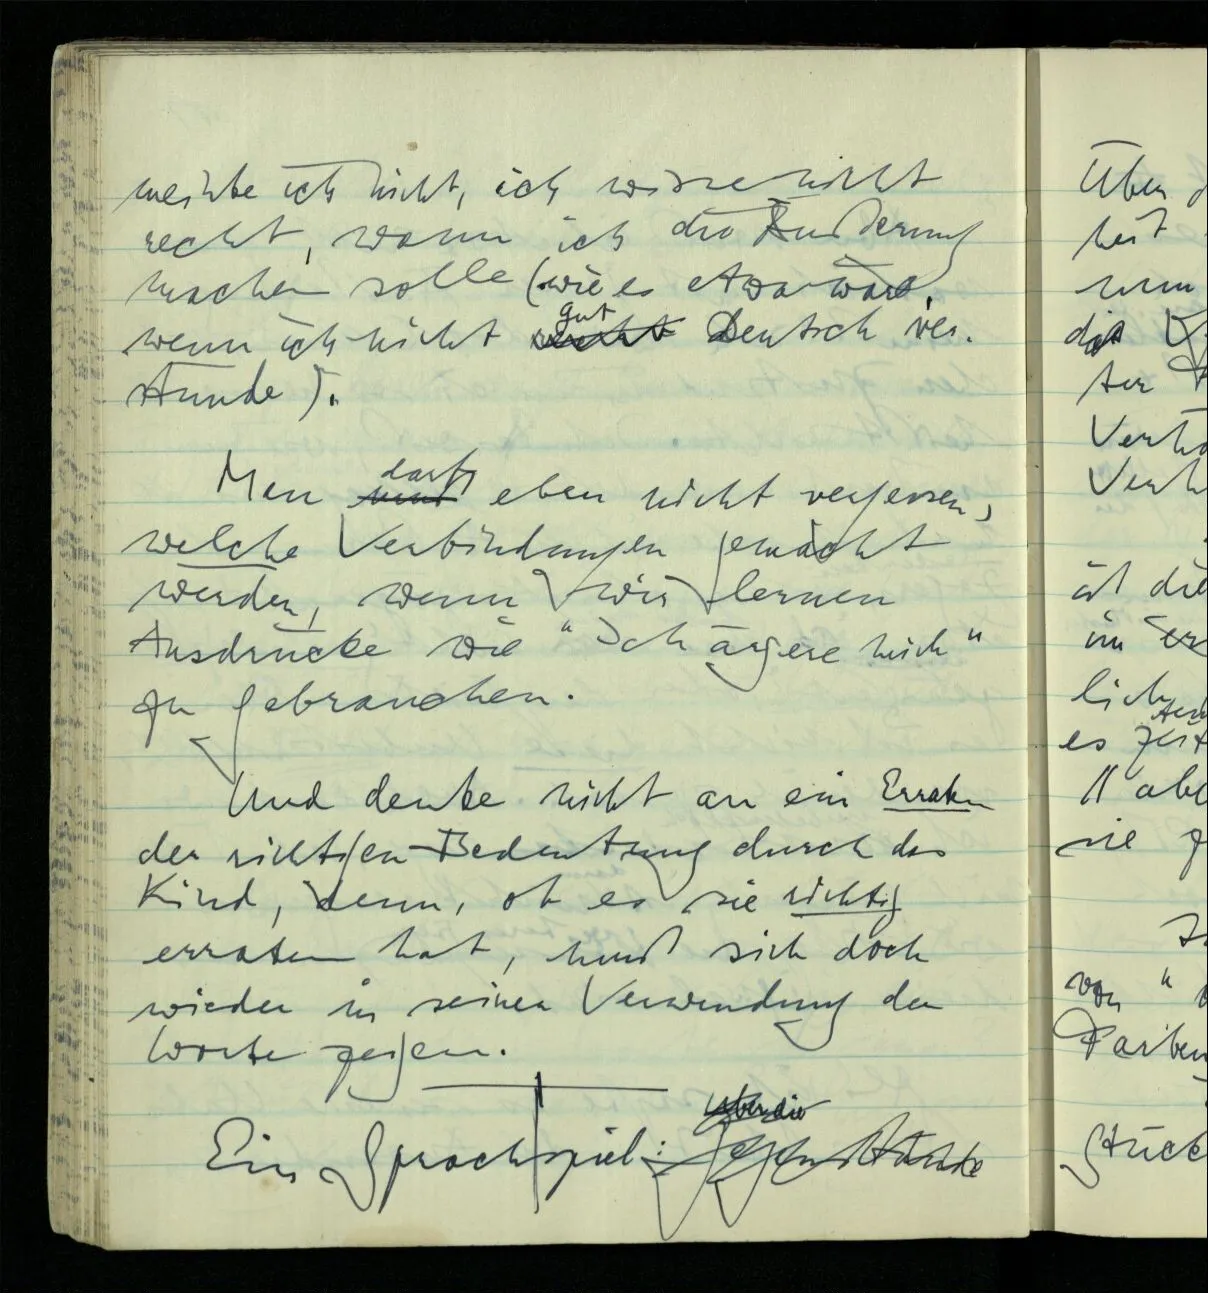 meinte ich nicht, ich wisse nicht
recht, wann ich die Äußerung
machen solle (wie es etwa wäre,
wenn ich nicht recht gut Deutsch ver-
stünde).
Man muß darf eben nicht vergessen,
welche Verbindungen gemacht
werden, wenn wir lernen
Ausdrücke wie "Ich ärgere mich"
zu gebrauchen.
Und denke nicht an ein Erraten
der richtigen Bedeutung durch das
Kind, denn, ob es sie richtig
erraten hat, muß sich doch
wieder in seiner Verwendung der
Worte zeigen.
Ein Sprachspiel: über die Gegenstände
Über
ist
ter
ist die
im
lich
es
// abe
sie
von "
Farben
Stück